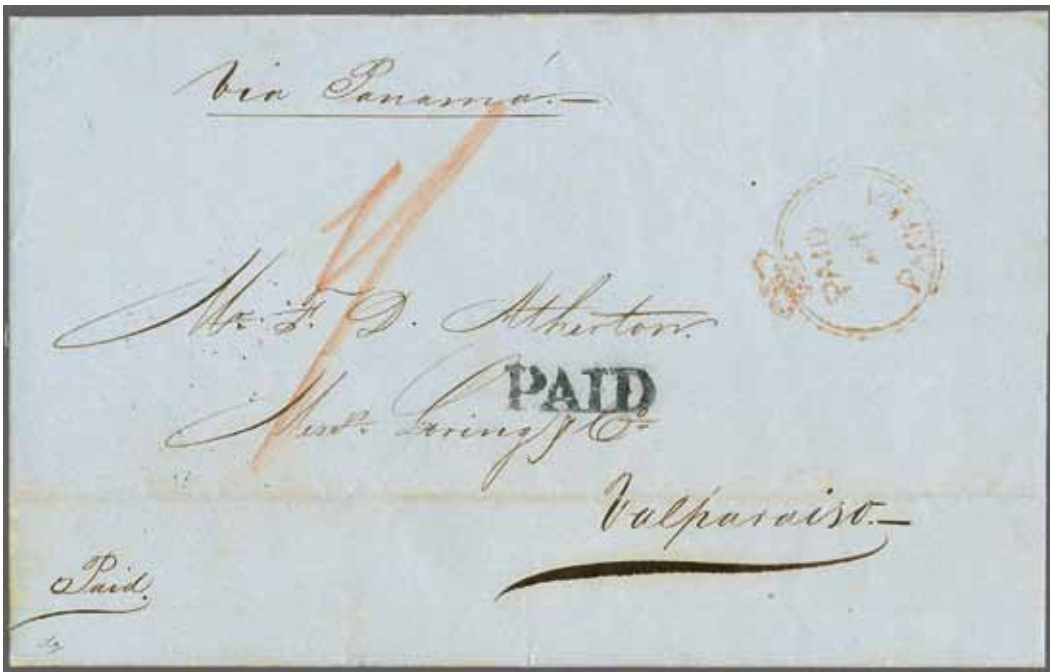 Via Panamá.—
PAID
PANAMA
Mr. F. D. Atherton.
PAID
Messrs. Loring & Co.
Valparaiso.—
Paid.